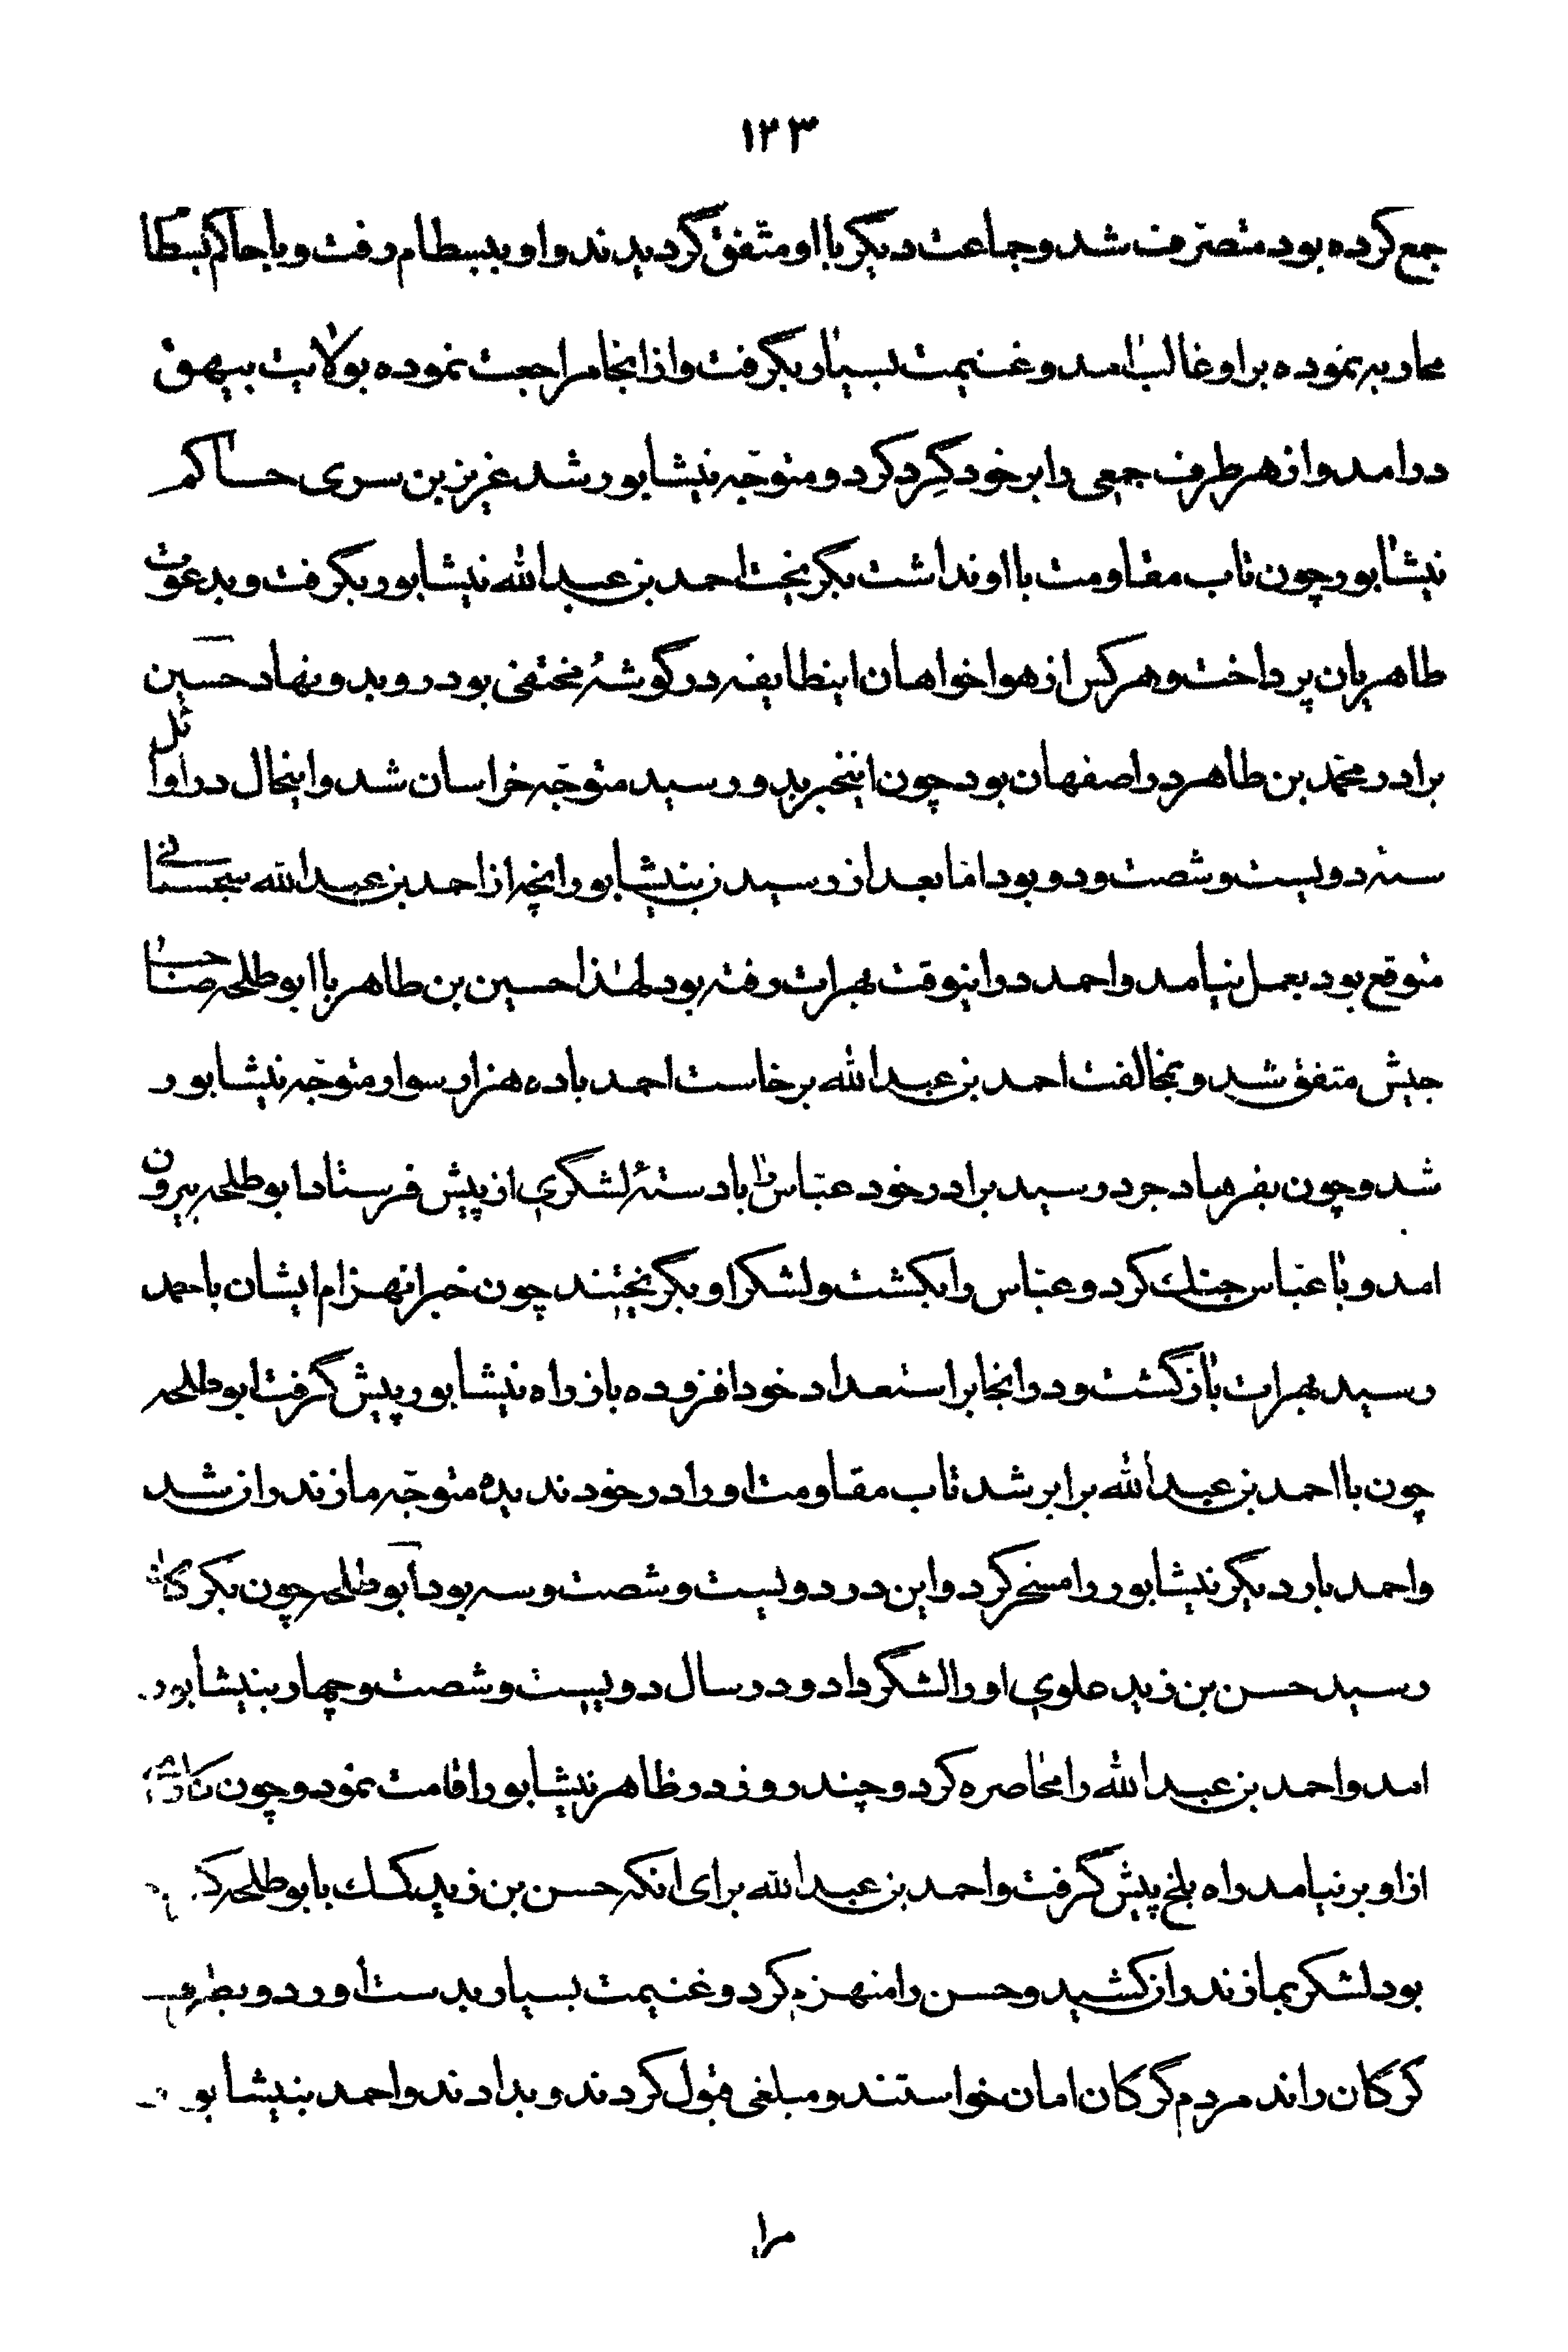 ۱۲۳
جمع کرده بود متصرف شد و جماعت دیگر با او متفق گردیدند و او ببسطام رفت و با حاکم بسطا
محاربه نموده بر او غالب امد و غنیمت بسیار بگرفت و از انجا مراجعت نموده بولایت بیهق
درامد و از هر طرف جمعی را بر خود کرد کرد و متوجه نیشابور شد عزیز بن سری حاکم
نیشابور چون تاب مقاومت با او نداشت بگریخت احمد بن عبدالله نیشابور بگرفت و بدعوت
طاهریان پرداخت و هر کس از هواخواهان اینطایفه در گوشهٔ مختفی بود روبد و نهاد حسین
برادر محمد بن طاهر در اصفهان بود چون اینخبر بد و رسید متوجه خراسان شد و اینحال در اوائل
سنه دویست و شصت و دو بود اما بعد از رسیدن بنیشابور انچه از احمد بن عبدالله سجستانی
متوقع بود بعمل نیامد و احمد در اینوقت بهرات رفته بود لهذا حسین بن طاهر با ابوطلحه صاحب
جیش متفق شد و بمخالفت احمد بن عبدالله برخاست احمد با ده هزار سوار متوجه نیشابور
شد و چون بفرهادجرد رسید برادر خود عباس را با دستهٔ لشگری از پیش فرستاد ابوطلحه بیرون
امد و با عباس جنك کرد و عباس را بکشت و لشکر او بگریختند چون خبر انهزام ایشان باحمد
رسید بهرات بازگشت و در انجا بر استعداد خود افزوده باز راه نیشابور پیش گرفت ابوطلحه
چون با احمد بن عبدالله برابر شد تاب مقاومت او را در خود ندیده متوجه مازندران شد
و احمد بار دیگر نیشابور را مسخر کرد و این در دویست و شصت و سه بود ابوطلحه چون بکرکان
رسید حسن بن زید علوی او را لشگر داد و در سال دویست و شصت و چهار بنیشابور
امد و احمد بن عبدالله را محاصره کرد و چند روز در ظاهر نیشابور اقامت نمود و چون کاری
از او بر نیامد راه بلخ پیش گرفت و احمد بن عبدالله برای انکه حسن بن زید کمك با بوطلحه
بود لشکر بمازندران کشید و حسن را منهزم کرد و غنیمت بسیار بدست اورد و بطرف
کرکان راند مردم گرکان امان خواستند و مبلغی قبول کردند و بدادند و احمد بنیشابور